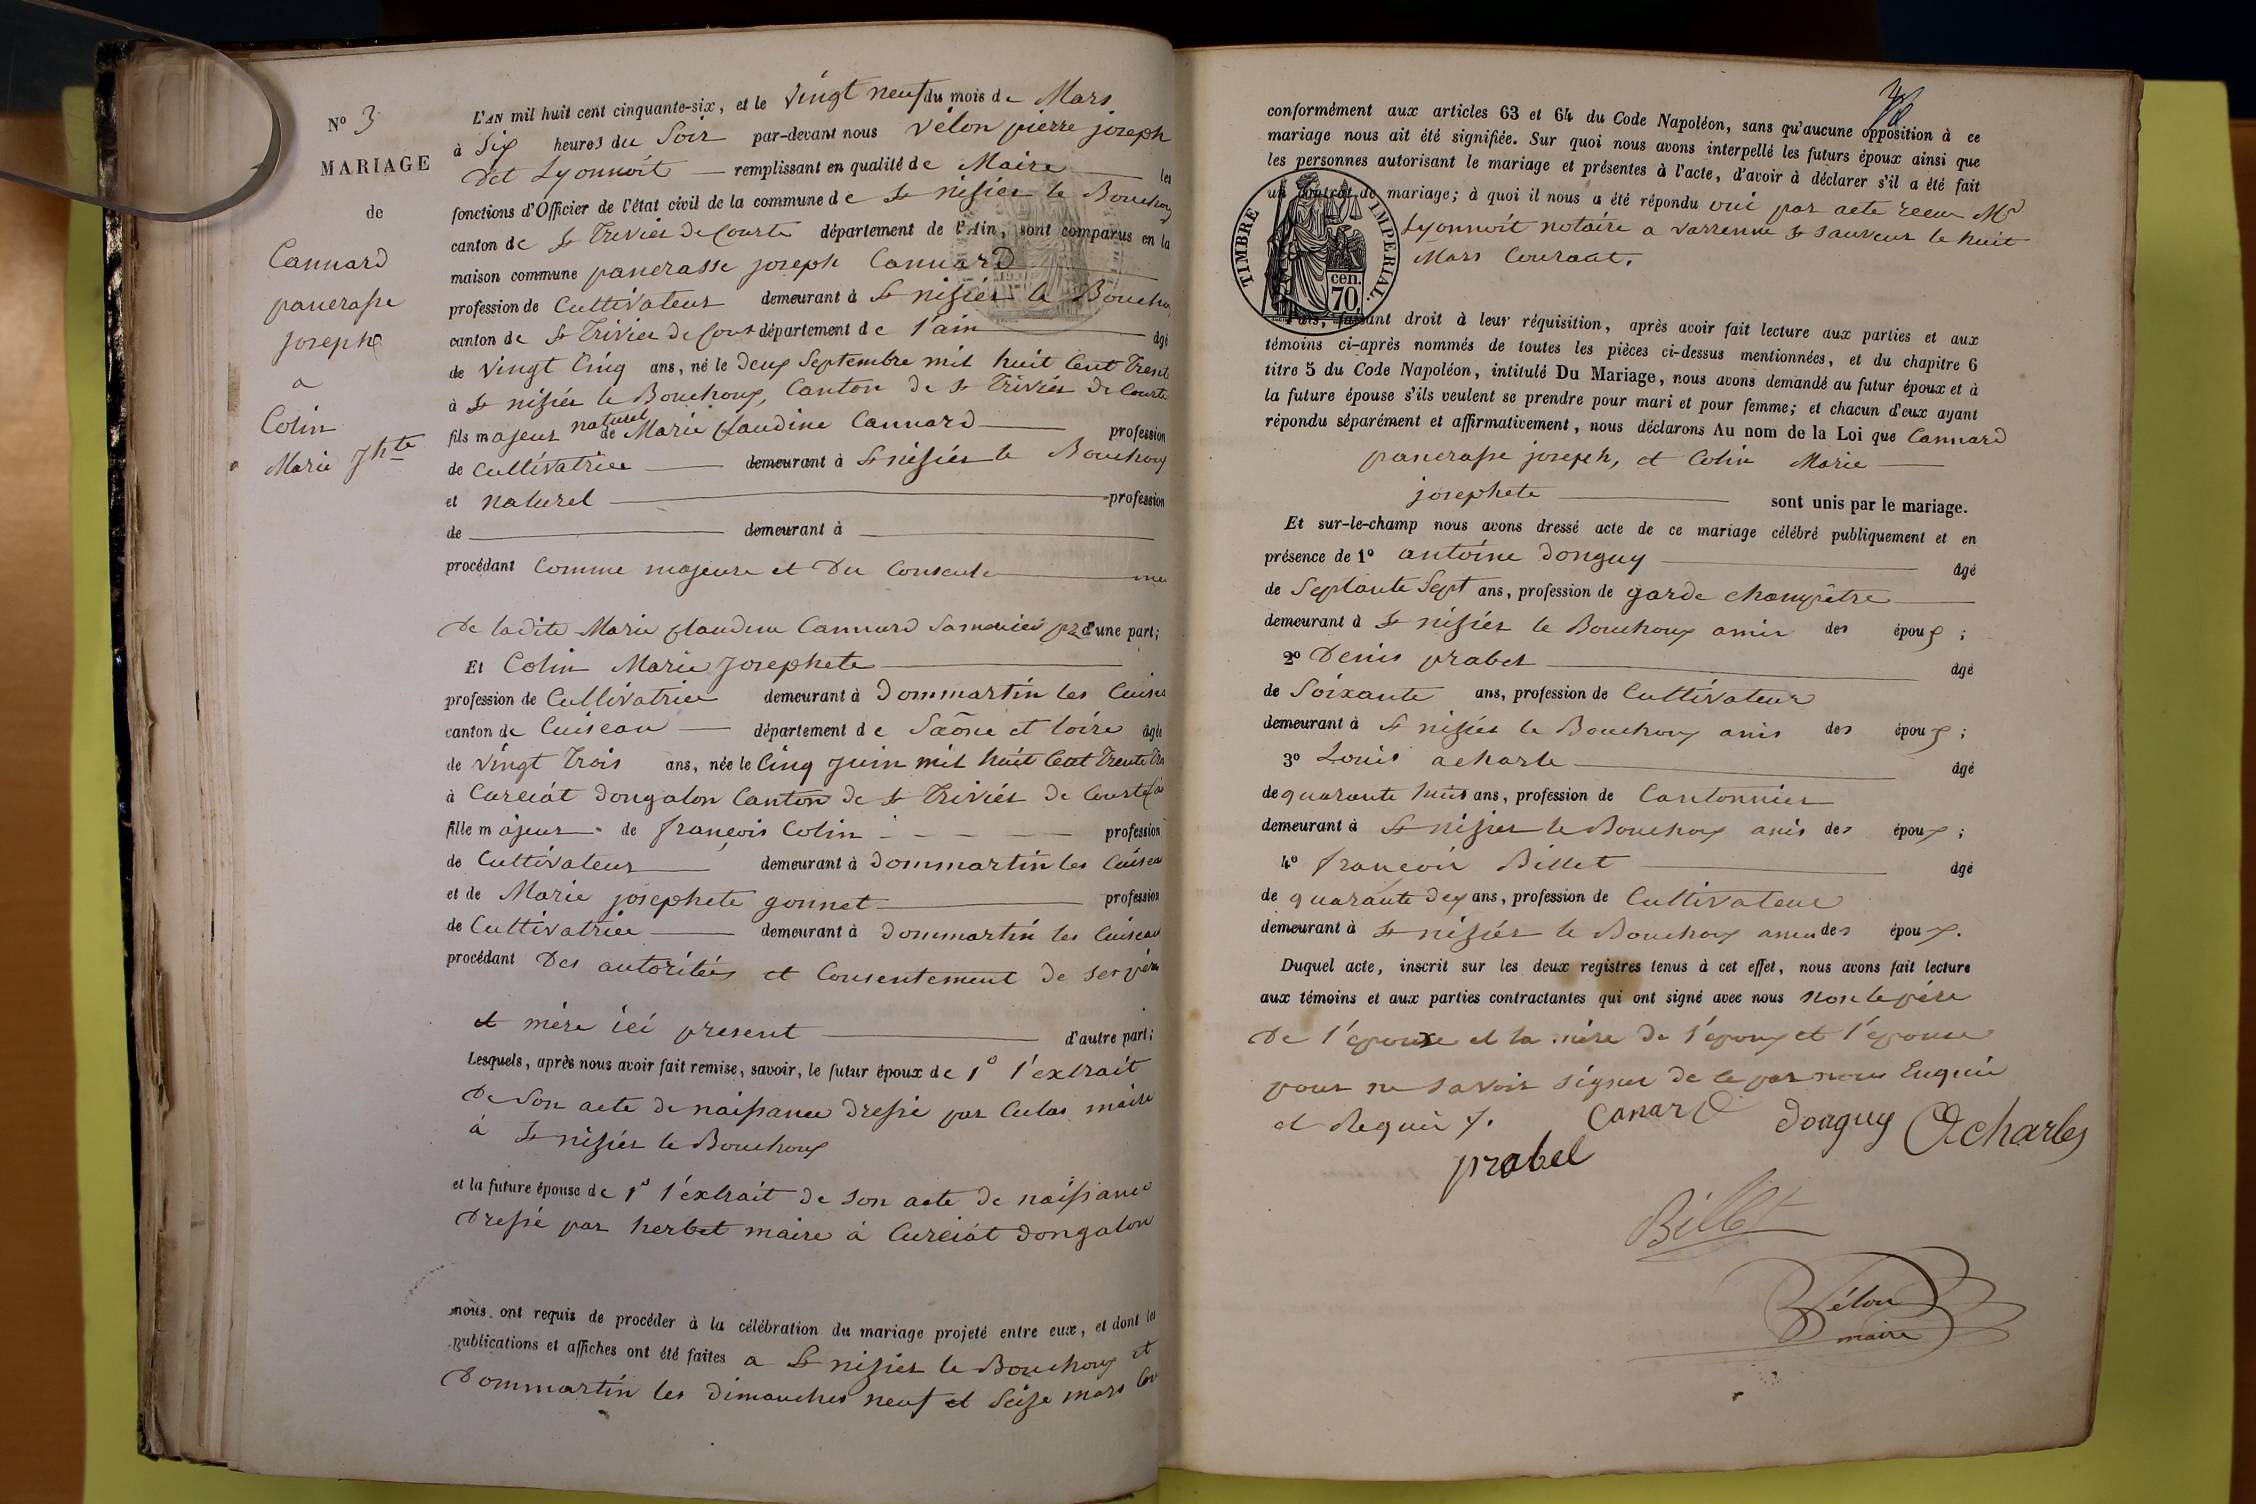 N° 3
MARIAGE
de
Cannard
pancrasse
joseph
a
Colin
Marie Jhte
L'AN mil huit cent cinquante-six, et le vingt neuf du mois de Mars
à Six heures du Soir par-devant nous vélon pierre joseph
dit Lyonnoit remplissant en qualité de Maire les
fonctions d'Officier de l'état civil de la commune de St nisier le Bouchoux
canton de St Trivier de Courte département de l'Ain, sont comparus en la
maison commune pancrasse joseph Cannard
profession de Cultivateur demeurant à St nisier le Bouchou
canton de St Trivier de Cour département de l'ain âgé
de vingt Cinq ans, né le deux Septembre mil huit Cent Trent
à St nisier le Bouchoux, Canton de St Trivier de Courte
fils majeur naturel de Marie Claudine Cannard profession
de Cultivatrice demeurant à St nisier le Bouchoux
et naturel profession
de demeurant à
procédant Comme majeure et Du Consente me
De ladite Marie Claudine Cannard Sa mère ici d'une part;
Et Colin Marie Josephete
profession de Cultivatrice demeurant à Dommartin les Cuise
canton de Cuiseau département de Saône et loire âgée
de vingt Trois ans, née le Cinq Juin mil huit Cent Trente Tro
à Curciat dongalon Canton de St Trivier de Courte
fille majeur de françois Colin profession
de Cultivateur demeurant à Dommartin les Cuisea
et de Marie josephete gonnet profession
de Cultivatrice demeurant à Dommartin les Cuiseau
procédant Des autorités et Consentement de Ses pére
et mére ici present d'autre part;
Lesquels, après nous avoir fait remise, savoir, le futur époux de 1° l'extrait
De Son acte de naissance dressé par Culas maire
à St nisier le Bouchoux
et la future épouse de 1° l'extrait de Son acte de naissance
Dressé par herbet maire à Curciat Dongalon
nous ont requis de procéder à la célébration du mariage projeté entre eux, et dont les
publications et affiches ont été faites a St nisier le Bouchoux et
Dommartin les dimanches neuf et Seize mars Cou
conformément aux articles 63 et 64 du Code Napoléon, sans qu'aucune opposition à ce
mariage nous ait été signifiée. Sur quoi nous avons interpellé les futurs époux ainsi que
les personnes autorisant le mariage et présentes à l'acte, d'avoir à déclarer s'il a été fait
un contrat de mariage; à quoi il nous a été répondu oui par acte recu Mr
Lyonnoit notaire a varrenne St Sauveur le huit
Mars Courant.
TIMBRE IMPERIAL.
cen.
70
Puis, faisant droit à leur réquisition, après avoir fait lecture aux parties et aux
témoins ci-après nommés de toutes les pièces ci-dessus mentionnées, et du chapitre 6
titre 5 du Code Napoléon, intitulé Du Mariage, nous avons demandé au futur époux et à
la future épouse s'ils veulent se prendre pour mari et pour femme; et chacun d'eux ayant
répondu séparément et affirmativement, nous déclarons Au nom de la Loi que Cannard
pancrasse joseph, et Colin Marie
josephete sont unis par le mariage.
Et sur-le-champ nous avons dressé acte de ce mariage célébré publiquement et en
présence de 1° antoine donguy âgé
de Septante Sept ans, profession de garde champêtre
demeurant à St nisier le Bouchoux amis des époux ;
2° Denis prabel âgé
de Soixante ans, profession de Cultivateur
demeurant à St nisier le Bouchoux amis des époux ;
3° Louis acharle âgé
de quarante huit ans, profession de Cantonnier
demeurant à St nisier le Bouchoux amis des époux ;
4° françois Billet âgé
de quarante dex ans, profession de Cultivateur
demeurant à St nisier le Bouchoux amis des époux.
Duquel acte, inscrit sur les deux registres tenus à cet effet, nous avons fait lecture
aux témoins et aux parties contractantes qui ont signé avec nous non le pére
De l'epouse et la mére de l'epoux et l'epouse
pour ne savoir signer de ce par nous Enquis
et Requis ⁊.
Canard donguy Acharles
prabel
Billet
Vélon
maire